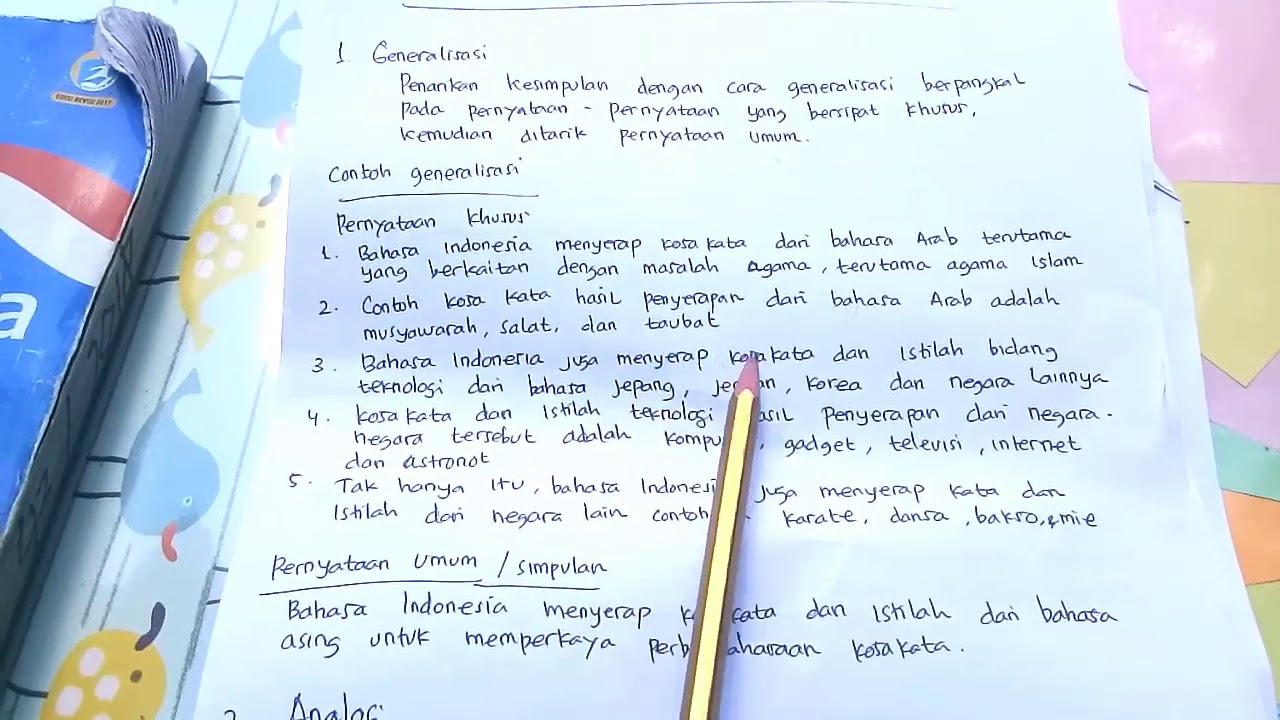 EDISI REVISI 2017
a
1. Generalisasi
Penarikan kesimpulan dengan cara generalisasi berpangkal
pada pernyataan - pernyataan yang bersipat khusus,
kemudian ditarik pernyataan umum.
Contoh generalisasi
Pernyataan khusus
1. Bahasa Indonesia menyerap kosa kata dari bahasa Arab terutama
yang berkaitan dengan masalah agama, terutama agama islam
2. Contoh kosa kata hasil penyerapan dari bahasa Arab adalah
musyawarah, salat, dan taubat
3. Bahasa Indonesia juga menyerap kosakata dan istilah bidang
teknologi dari bahasa jepang, , korea dan negara lainnya
4. kosakata dan istilah teknologi penyerapan dari negara-
negara tersebut adalah , gadget, televisi, internet
dan astronot
5. Tak hanya itu, bahasa juga menyerap kata dan
istilah dari negara lain karate, dansa, bakso, & mie
Pernyataan umum / simpulan
Bahasa Indonesia menyerap dan istilah dari bahasa
asing untuk memperkaya kosakata.
2. Analogi